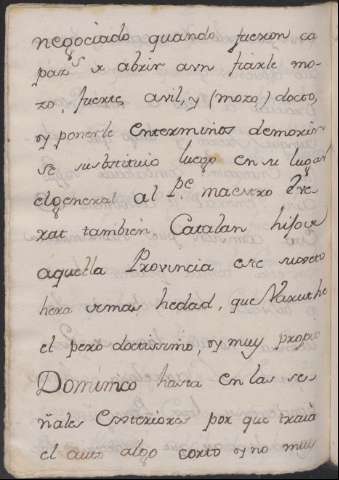 negociado quando fueron co
paz.s a abrir a vn fraile mo-
zo, fuerte, avil, y (mozo) docto,
y ponerle en terminos de morir
se substituio luego en su lugar
el general al P.e maestro Pre
xat tambien Catalan hijo de
aquella Provincia este sugeto
hera de mas hedad, que
el pero doctissimo, y muy propio
Dominico hasta en las se-
ñales exteriores por que traia
el auto algo corto y no muy